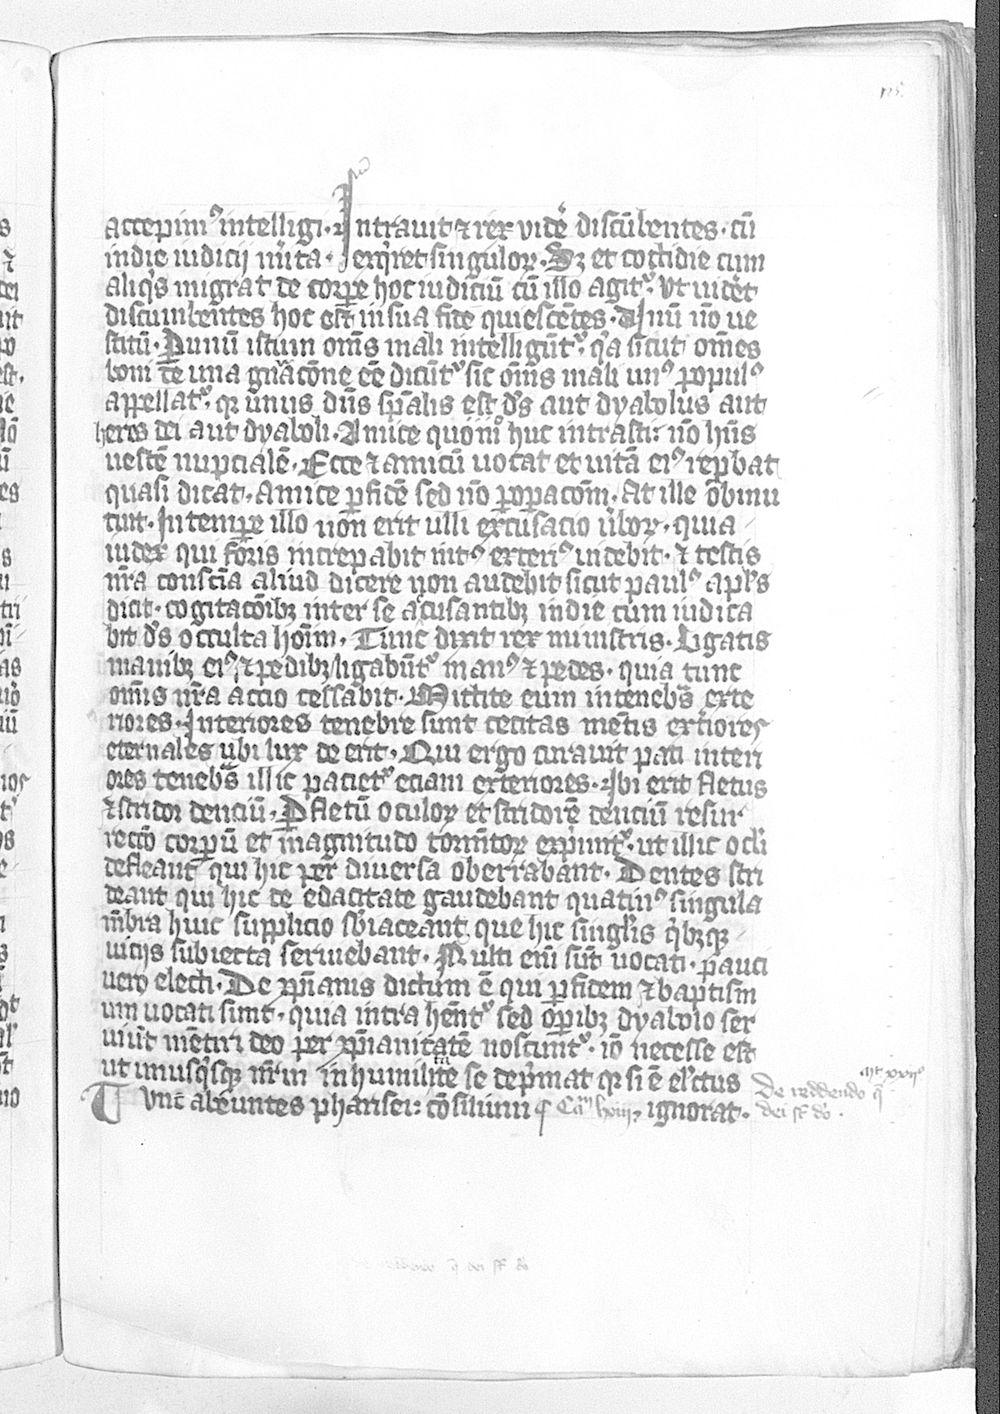 125.
accepim⁹ intelligi · Intrauit ⁊ rex vidē discūbentes · cū
in die iudicii mēta · exq̄ret singuloꝝ · Sꝫ et cottidie cum
aliqͥs migrat de corꝑe hoc iudiciū cū illo agit᷑ · Vt uidēt
discumbentes hoc est in sua fide quiescētes · Vnū nō ue
stitū · ꝑ unū istum om̄s mali intelligūt᷑ · qͥa sicut om̄es
boni de una gn̄acōne eē dicūt᷑ sic om̄s mali un⁹ popul⁹
appellat᷑ · qꝛ unus dūs sp̄alis est d̄s aut dyabolus aut
heres dei aut dyaboli · Amice quōmͦ huc intrasti : nō hn̄s
uestē nupcialē · Ecce ⁊ amicū uocat et uitā ei⁹ rep̄bat
quasi dicat · Amice ꝑ fidē sed nō ꝑ oꝑacōm · At ille ōbmu
tuit · In tempe illo non erit ulli excusacio ūboꝝ · quia
iudex qui foris increpabit int⁹ exteri⁹ uidebit · ⁊ testis
nr̄a consciā aliud dicere non audebit sicut paul⁹ apl̄s
dicit · cogitacōibꝫ inter se a͛cusantibꝫ in die cum iudica
bit d̄s occulta hom̄ · Tunc dixit rex ministris · Ligatis
manibꝫ ei⁹ ⁊ pedibꝫ ligabūt᷑ man⁹ ⁊ pedes · quia tunc
om̄is nr̄a actio cessabit · Mittite eum in tenebs̄ exte
riores · Interiores tenebre sunt cecitas mētis exͭiores
eternales ubi lux de erit · Qui ergo curauit pati interi
ores tenebs̄ illic paciet᷑ eciam exteriores · Ibi erit fletus
⁊ stridor denciū · ꝑ fletū oculoꝝ et stridorē denciū resur
rectō corꝑū et magnitudo tormētoꝝ exp̄mit᷑ · ut illic ocli
defleant qui hic per diuersa oberrabant · Dentes stri
deant qui hic de edacitate gaudebant quatin⁹ singula
mēbra huic supplicio s̄biaceant que hic singl̄is qͥbꝫqꝫ
uiciis subiecta seruiebant · Multi eni sūt uocati · pauci
uero electi · De xp̄ianis dictum ē qui ꝑ fidem ⁊ baptism
um uocati sunt · quia intra hēnt᷑ sed oꝑibꝫ dyabolo ser
uiūt mētiri deo per xp̄ianitatē noscunt᷑ · iō necesse est
ut unusqͥsqꝫ nr̄m in humilitatē se dep̄mat qꝛ si ē elc̄tus
Tunc abeuntes pharisei : cōsilium ¶ ignorat ·
mt xxii°
De reddendo q̄
dei st̄ dō .